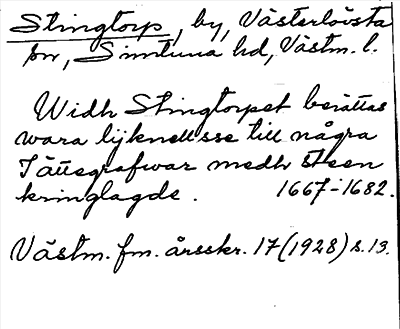 Stingtorp, by, Västerlövsta
sn, Simtuna hd, Västm. l.
Widh Stingtorpet berättas
wara lijknellsse till några
Jättegrafwar medh Steen
kringlagde. 1667-1682.
Västm. fm. årsskr. 17 (1928) s. 13.